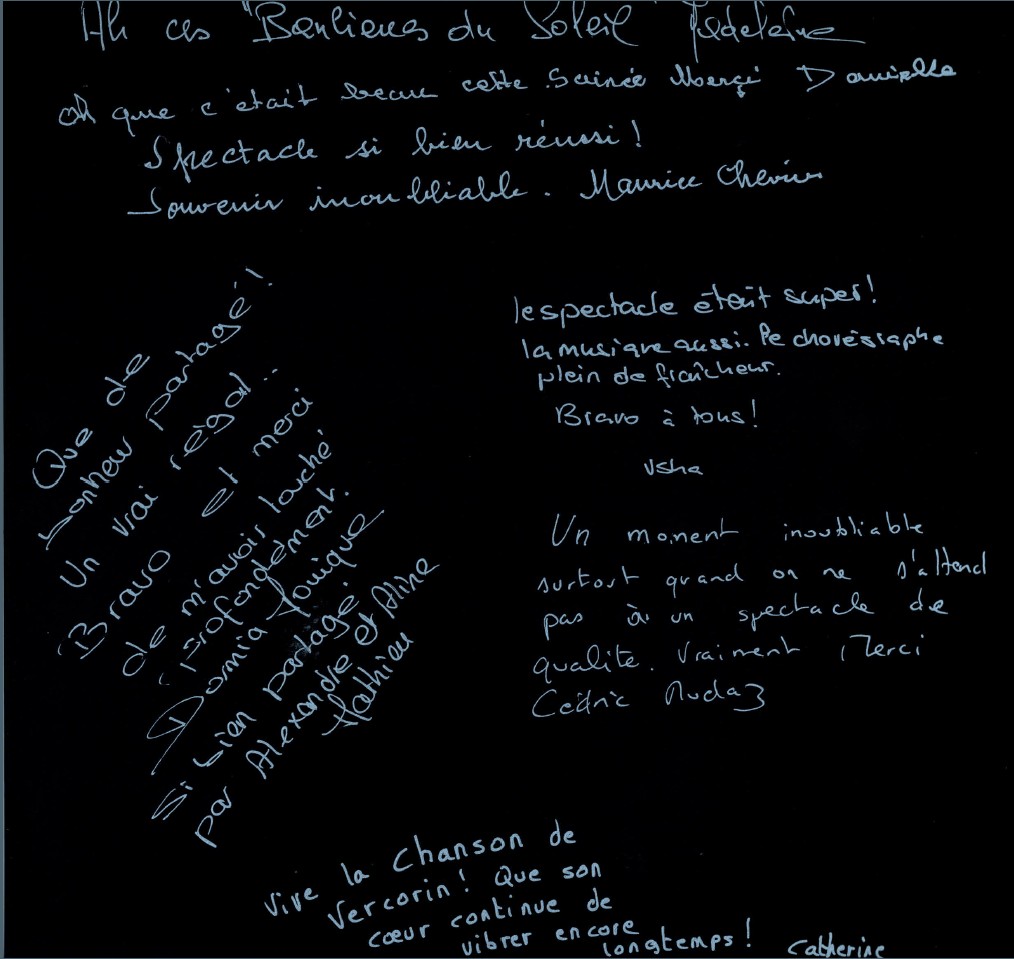 Ah ces "Banlieues du Soleil"
oh que c'était beau cette Soirée Merçi Danielle
Spectacle si bien réussi!
Souvenir inoubliable. Maurice
Que de
bonheur partagé!
Un vrai régal...
Bravo et merci
de m'avoir touché
profondément.
Si bien partagé
par Alexandre et Aline
Mathieu
le spectacle était super!
la musique aussi. Le chorégraphe
plein de fraîcheur.
Bravo à tous!
Usha
Un moment inoubliable
surtout quand on ne s'attend
pas à un spectacle de
qualité. Vraiment Merci
Cédric Rudaz
Vive la Chanson de
Vercorin! Que son
cœur continue de
vibrer encore
longtemps! Catherine